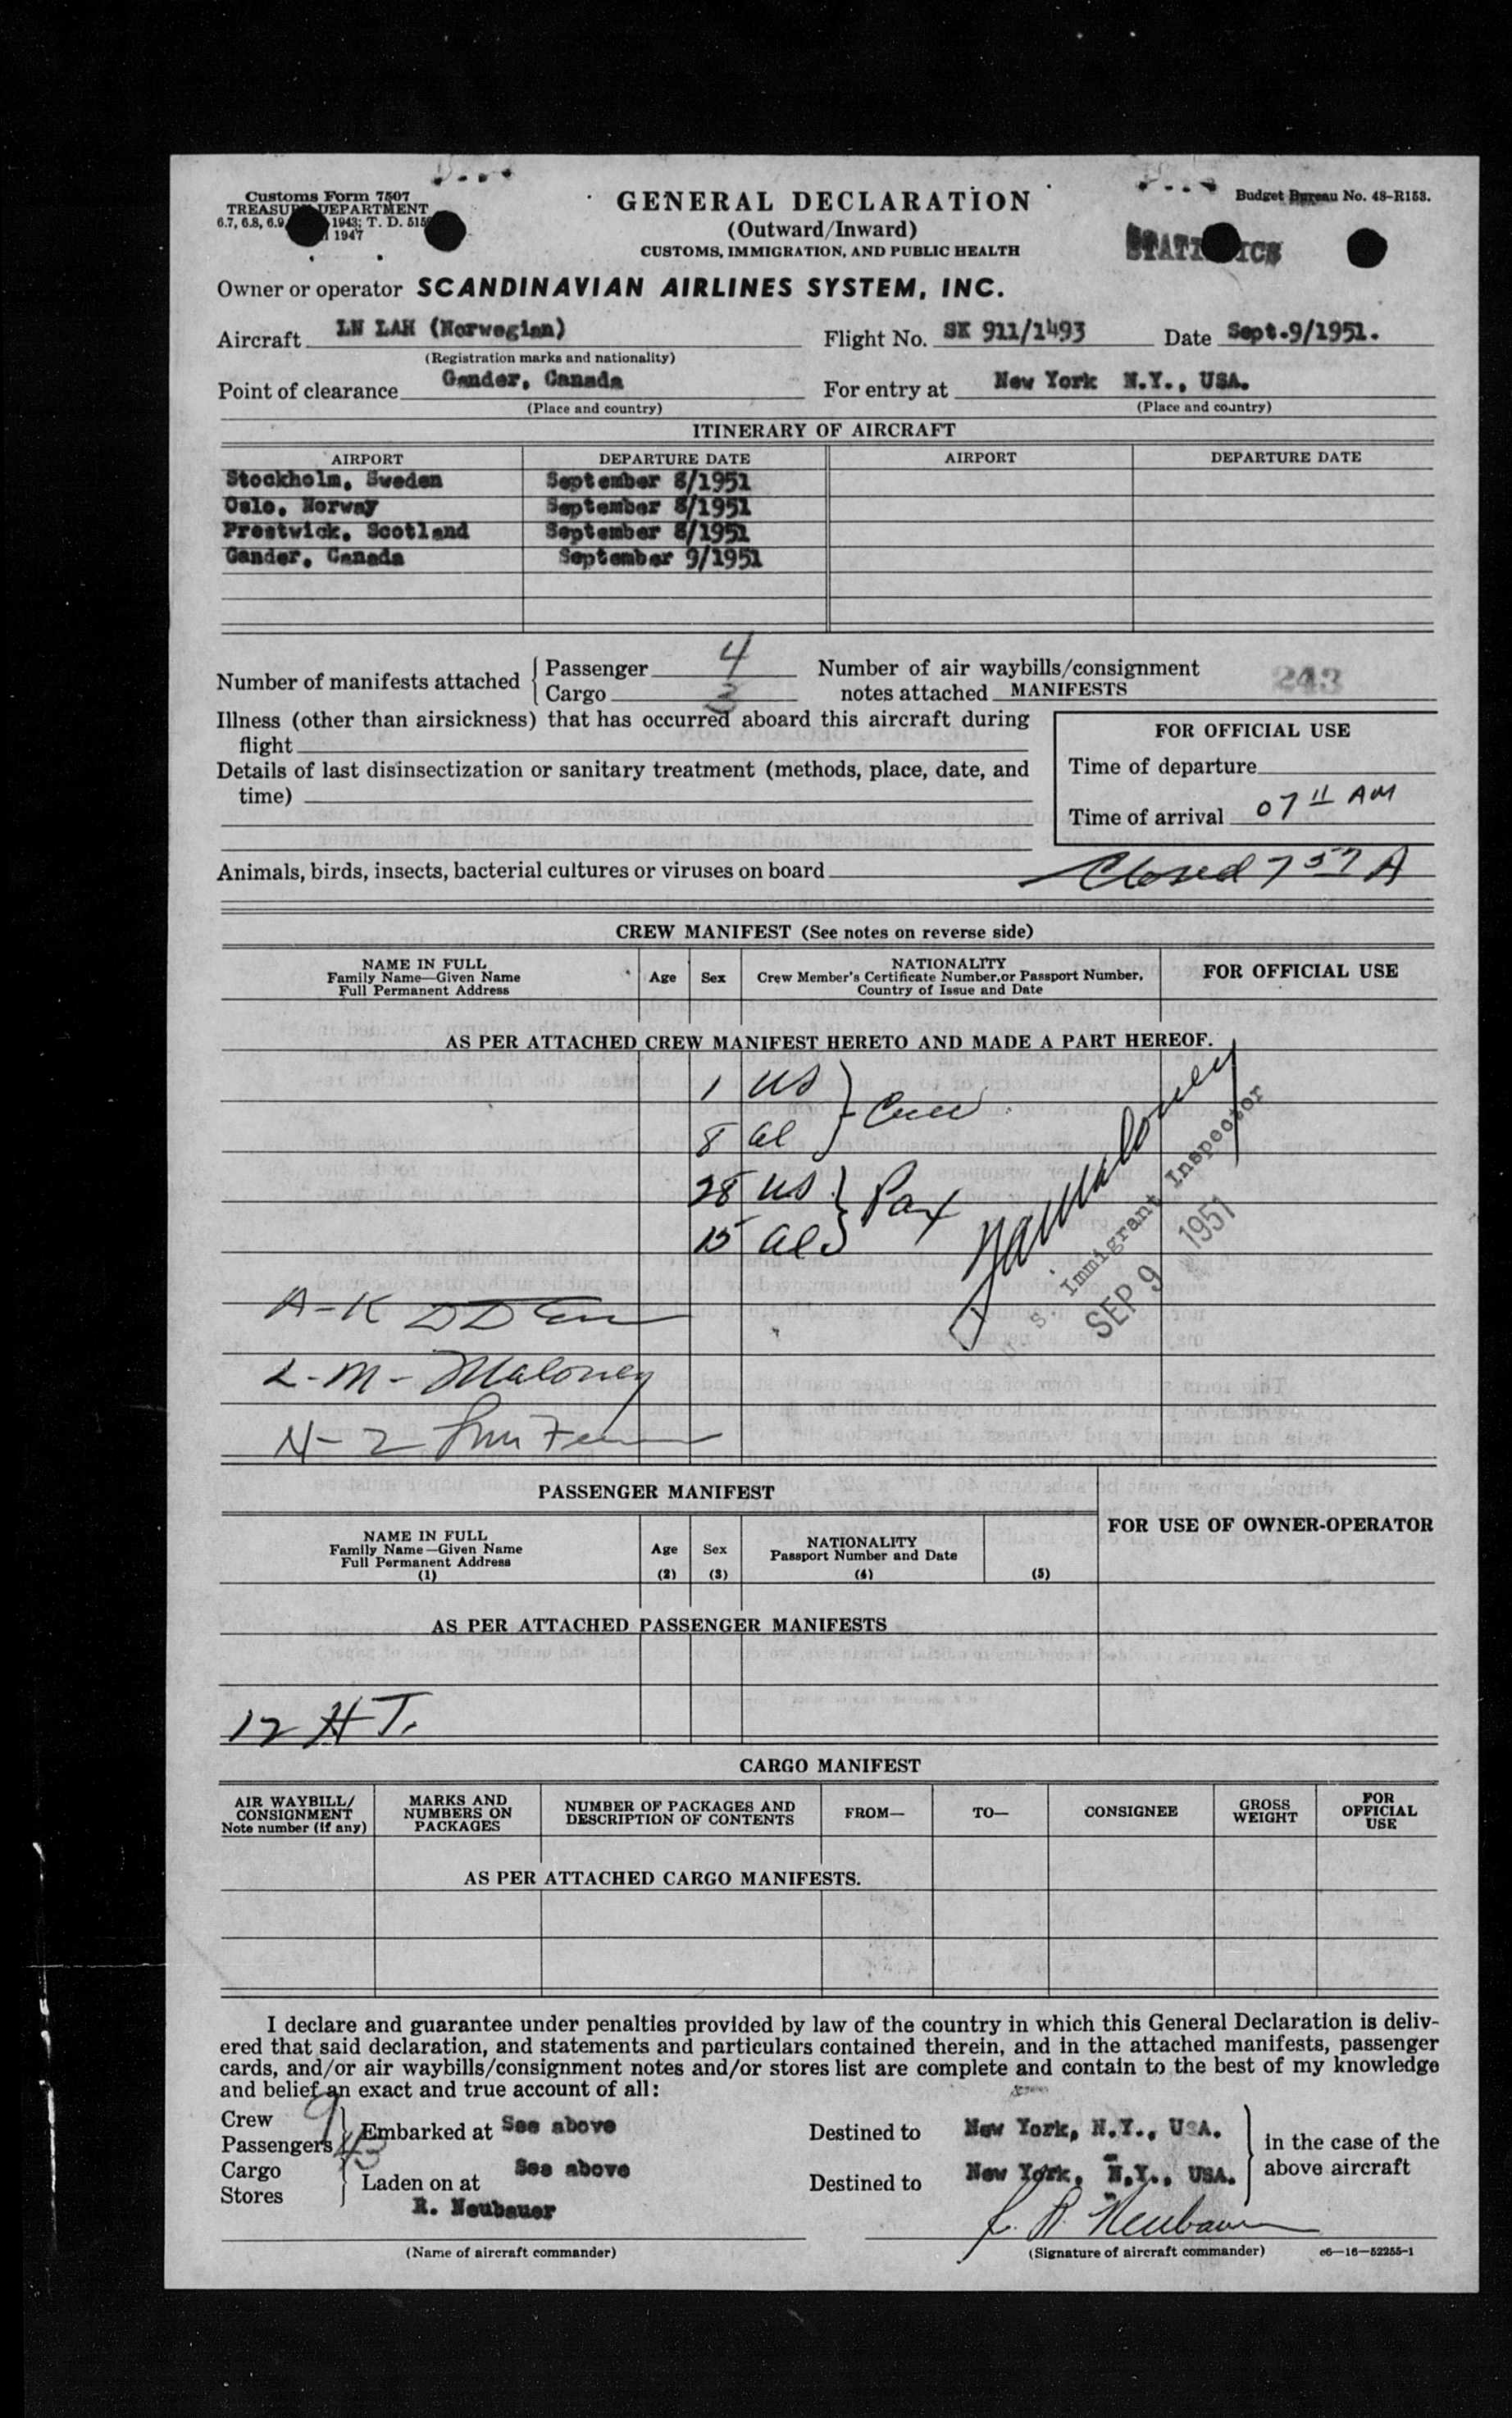 Customs Form 7507
TREASURY DEPARTMENT
6.7, 6.8, 6.9 1943; T. D. 515
1947
GENERAL DECLARATION
(Outward/Inward)
CUSTOMS, IMMIGRATION, AND PUBLIC HEALTH
Budget Bureau No. 48-R153.
STATISTICS
Owner or operator SCANDINAVIAN AIRLINES SYSTEM, INC.
Aircraft LN LAH (Norwegian) Flight No. SK 911/1493 Date Sept.9/1951.
(Registration marks and nationality)
Point of clearance Gander, Canada For entry at New York N.Y., USA.
(Place and country) (Place and country)
ITINERARY OF AIRCRAFT
AIRPORT DEPARTURE DATE AIRPORT DEPARTURE DATE
Stockholm, Sweden September 8/1951
Oslo, Norway September 8/1951
Prestwick, Scotland September 8/1951
Gander, Canada September 9/1951
Number of manifests attached Passenger 4 Number of air waybills/consignment
Cargo 3 notes attached MANIFESTS 243
Illness (other than airsickness) that has occurred aboard this aircraft during
flight
Details of last disinsectization or sanitary treatment (methods, place, date, and
time)
FOR OFFICIAL USE
Time of departure
Time of arrival 07 11 AM
Animals, birds, insects, bacterial cultures or viruses on board Closed 7 57 A
CREW MANIFEST (See notes on reverse side)
NAME IN FULL
Family Name—Given Name
Full Permanent Address
Age Sex
NATIONALITY
Crew Member's Certificate Number, or Passport Number,
Country of Issue and Date
FOR OFFICIAL USE
AS PER ATTACHED CREW MANIFEST HERETO AND MADE A PART HEREOF.
1 US
8 al } Crew
28 US
15 al } Pax
Maloney
U. S. Immigrant Inspector
SEP 9 1951
A-K
L-M- Maloney
N-Z
PASSENGER MANIFEST
NAME IN FULL
Family Name—Given Name
Full Permanent Address
(1)
Age
(2)
Sex
(3)
NATIONALITY
Passport Number and Date
(4)
(5)
FOR USE OF OWNER-OPERATOR
AS PER ATTACHED PASSENGER MANIFESTS
12 HT.
CARGO MANIFEST
AIR WAYBILL/
CONSIGNMENT
Note number (if any)
MARKS AND
NUMBERS ON
PACKAGES
NUMBER OF PACKAGES AND
DESCRIPTION OF CONTENTS
FROM— TO— CONSIGNEE
GROSS
WEIGHT
FOR
OFFICIAL
USE
AS PER ATTACHED CARGO MANIFESTS.
I declare and guarantee under penalties provided by law of the country in which this General Declaration is deliv-
ered that said declaration, and statements and particulars contained therein, and in the attached manifests, passenger
cards, and/or air waybills/consignment notes and/or stores list are complete and contain to the best of my knowledge
and belief an exact and true account of all:
Crew 9
Passengers 43 Embarked at See above Destined to New York, N.Y., USA. in the case of the
Cargo above aircraft
Stores Laden on at See above Destined to New York, N.Y., USA.
R. Neubauer R. Neubauer
(Name of aircraft commander) (Signature of aircraft commander) c6—16—52255-1